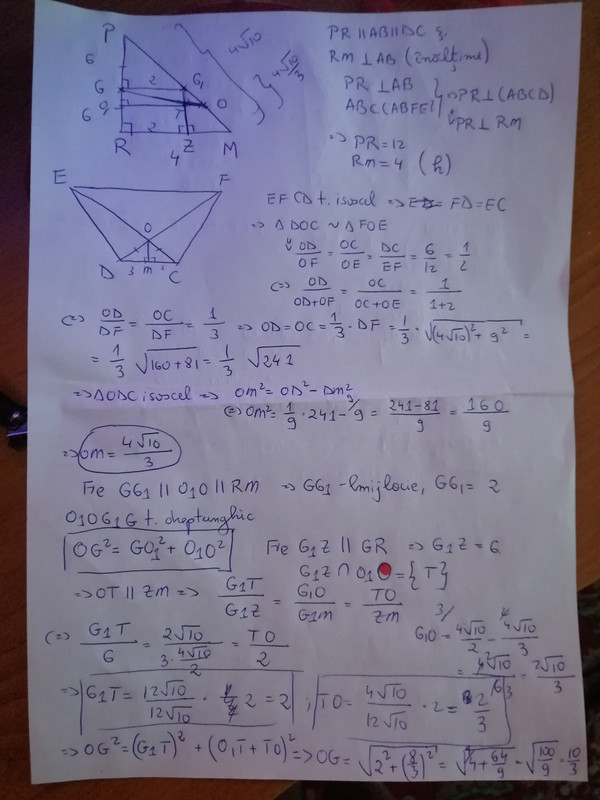 PR || AB || DC
RM ⊥ AB (înălțime)
PR ⊥ AB
ABC (ABFE) } => PR ⊥ (ABCD)
PR ⊥ RM
=> PR = 12
RM = 4 (h)
P
6
G
2
G₁
6
O₁
T
O
R
2
Z
4
M
4√10
4√10/3
E
F
O
D
3
m
C
EFCD t. isoscel => = FD = EC
=> Δ DOC ~ Δ FOE
OD/OF = OC/OE = DC/EF = 6/12 = 1/2
(=) OD/(OD+OF) = OC/(OC+OE) = 1/(1+2)
(=) OD/DF = OC/DF = 1/3 => OD = OC = 1/3 · DF = 1/3 · √((4√10)² + 9²) =
= 1/3 √(160+81) = 1/3 √241
=> Δ ODC isoscel => OM² = OD² - DM²
(=) OM² = 1/9 · 241 - 9 = (241-81)/9 = 160/9
=> OM = 4√10/3
Fie GG₁ || O₁O || RM => GG₁ - lmijlocie, GG₁ = 2
O₁OG₁G t. dreptunghic
OG² = GO₁² + O₁O²
Fie G₁Z || GR => G₁Z = 6
G₁Z ∩ O₁O = {T}
=> OT || ZM => G₁T/G₁Z = G₁O/G₁M = TO/ZM
(=) G₁T/6 = 2√10/(3 · 4√10/2) = TO/2
G₁O = 4√10/2 - 4√10/3
= 4√10/6 = 2√10/3
=> G₁T = 12√10/12√10 · 2 = 2 ; TO = 4√10/12√10 · 2 = 2/3
=> OG² = (G₁T)² + (O₁T + TO)² => OG = √(2² + (8/3)²) = √(4 + 64/9) = √(100/9) = 10/3